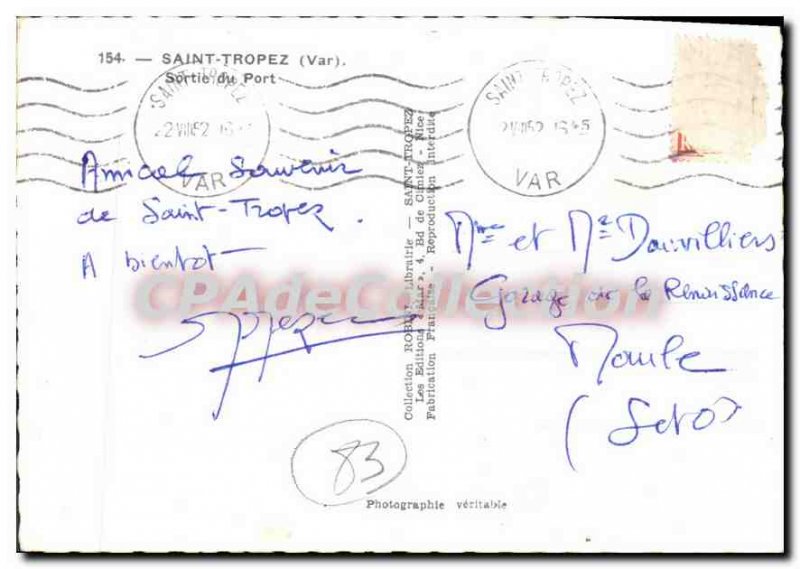 154. — SAINT-TROPEZ (Var).
Sortie du Port
SAINT TROPEZ
22 VIII 52 18 45
VAR
SAINT TROPEZ
VAR
Amical Souvenir
de Saint-Tropez.
A bientot
Mme et Mr Dauvilliers
Garage de la Renaissance
Maule
(S et O)
CPAdeCollection
Collection ROBIN, Librairie — SAINT-TROPEZ
Les Editions "Mar", 4, Bd de Cimiez - Nice
Fabrication Française - Reproduction interdite
83
Photographie véritable